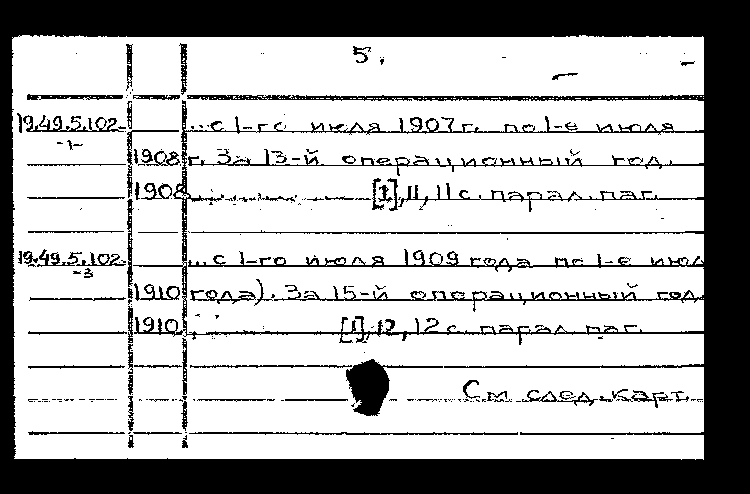 5.
19.49.5.102- ...с 1-го июля 1907 г. по 1-е июля
-1-
1908 г. За 13-й операционный год.
1908. [1], 11, 11 с. парал. паг.
19.49.5.102- ...с 1-го июля 1909 года по 1-е июл
-3
1910 года). За 15-й операционный год.
1910. [1], 12, 12 с. парал. паг.
См след. карт.